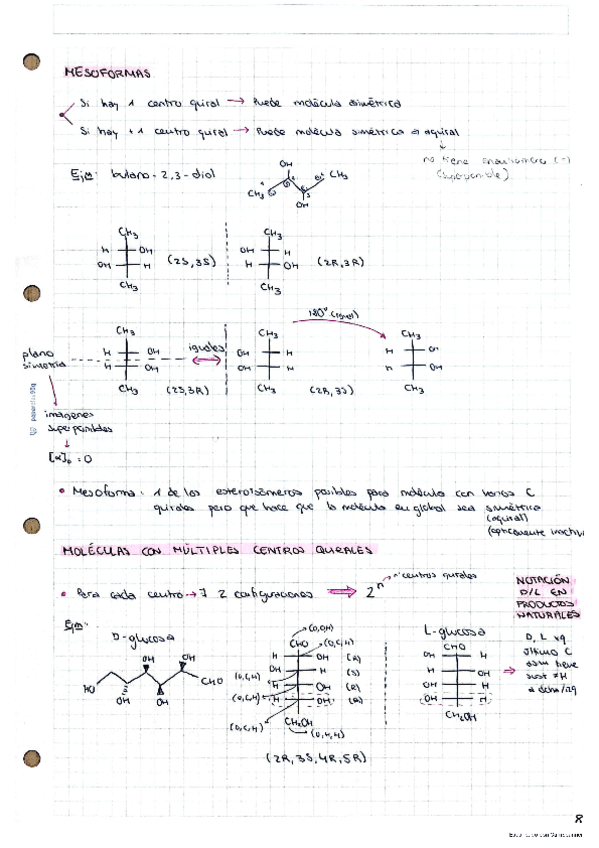 MESOFORMAS
Si hay 1 centro quiral → Puede molécula simétrica
Si hay + 1 centro quiral → Puede molécula simétrica → aquiral
no tiene enantiómero (-)
(superponible)
Ejm: butano-2,3-diol
OH
CH3
CH3
OH
CH3 CH3
H OH OH H
OH H (2S,3S) H OH (2R,3R)
CH3 CH3
180° (igual)
plano simetría
CH3 iguales CH3 CH3
H OH OH H H OH
H OH OH H H OH
CH3 (2S,3R) CH3 (2R,3S) CH3
imágenes
superponibles
[α]D = 0
• Mesoforma: 1 de los estereoisómeros posibles para molécula con varios C
quirales pero que hace que la molécula en global sea simétrica
(aquiral)
(ópticamente inactiva
MOLÉCULAS CON MÚLTIPLES CENTROS QUIRALES
• Para cada centro → ∃ 2 configuraciones ⇒ 2^n → nº centros quirales
NOTACIÓN
D/L EN
PRODUCTOS
NATURALES
Ejm:
D-glucosa
HO OH OH OH OH CHO
(O,O,H)
CHO (O,C,H)
H OH (R)
(O,C,H) OH H (S)
(O,C,H) H OH (R)
H OH (R)
(O,C,H) CH2OH
(O,H,H)
(2R,3S,4R,5R)
L-glucosa
CHO
OH H
H OH
OH H
OH H
CH2OH
D, L
último C
tiene
sust ≠H
a dcha/izq
8